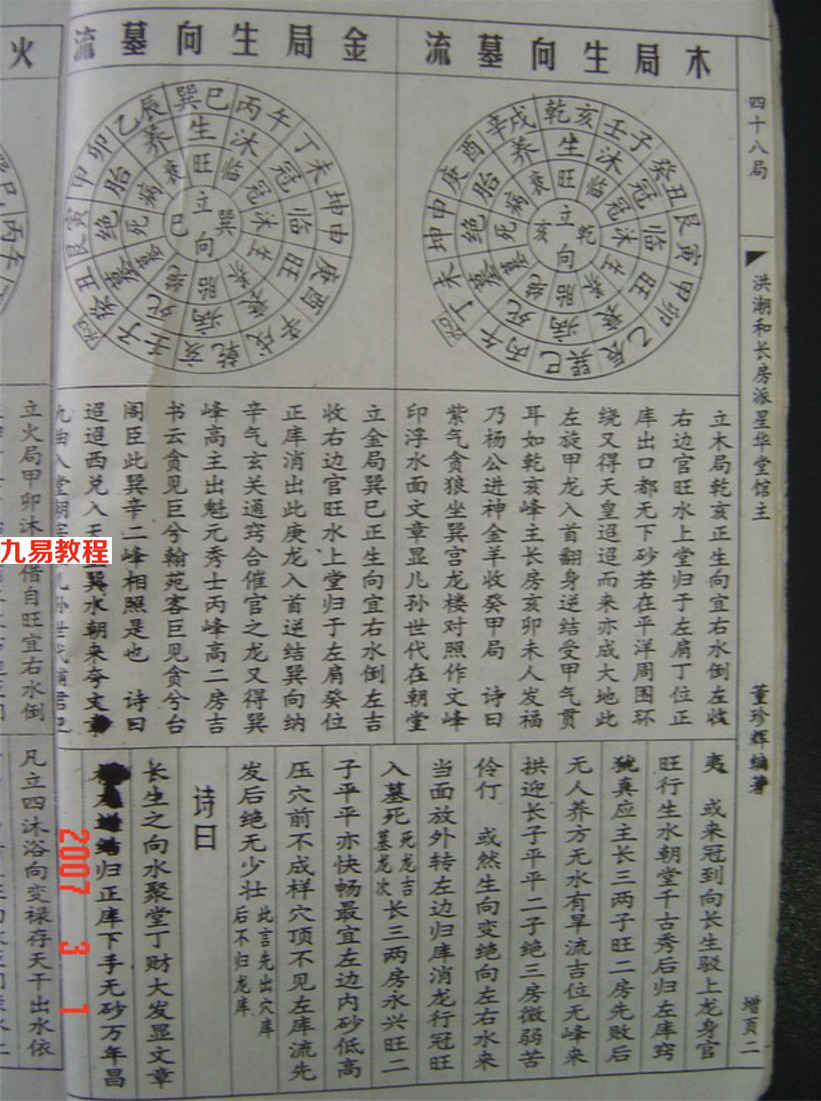 四十八局
洪潮和长房派星华堂馆主
董珍辉编著
增页二
木局生向墓流
乾亥
壬子
癸丑
艮寅
甲卯
乙辰
巽巳
丙午
丁未
坤申
庚酉
辛戌
生
沐
冠
临
旺
衰
病
死
墓
绝
胎
养
旺
临
冠
沐
生
养
胎
绝
墓
死
病
衰
立
乾
向
亥
立木局乾亥正生向宜右水倒左收
右边官旺水上堂归于左肩丁位正
库出口都无下砂若在平洋周围环
绕又得天皇迢迢而来亦成大地此
左旋甲龙入首翻身逆结受甲气贯
耳如乾亥峰主长房亥卯未人发福
乃杨公进神金羊收癸甲局 诗曰
紫气贪狼坐巽宫龙楼对照作文峰
印浮水面文章显儿孙世代在朝堂
金局生向墓流
巽巳
丙午
丁未
坤申
庚酉
辛戌
乾亥
壬子
癸丑
艮寅
甲卯
乙辰
生
沐
冠
临
旺
衰
病
死
墓
绝
胎
养
旺
临
冠
沐
生
养
胎
绝
墓
死
病
衰
立
巽
向
巳
立金局巽巳正生向宜右水倒左吉
收右边官旺水上堂归于左肩癸位
正库消出此庚龙入首逆结巽向纳
辛气玄关通窍合催官之龙又得巽
峰高主出魁元秀士丙峰高二房吉
书云贪见巨兮翰苑客巨见贪兮台
阁臣此巽辛二峰相照是也 诗曰
迢迢西兑入天 巽水朝来夸文章
九曲入堂朝 儿孙世代
夷 或来冠到向长生驳上龙身官
旺行生水朝堂千古秀后归左库窍
犹真应主长三两子旺二房先败后
无人养方无水有旱流吉位无峰来
拱迎长子平平二子绝三房微弱苦
伶仃 或然生向变绝向左右水来
当面放外转左边归库消龙行冠旺
入墓死死龙吉墓龙次长三两房永兴旺二
子平平亦快畅最宜左边内砂低高
压穴前不成样穴顶不见左库流先
发后绝无少壮此言先出穴库后不归龙库
诗曰
长生之向水聚堂丁财大发显文章
归正库下手无砂万年昌
火
立火局甲卯沐 借自旺宜右水倒
凡立四沐浴向变禄存天干出水依
九易教程
2007 3 1